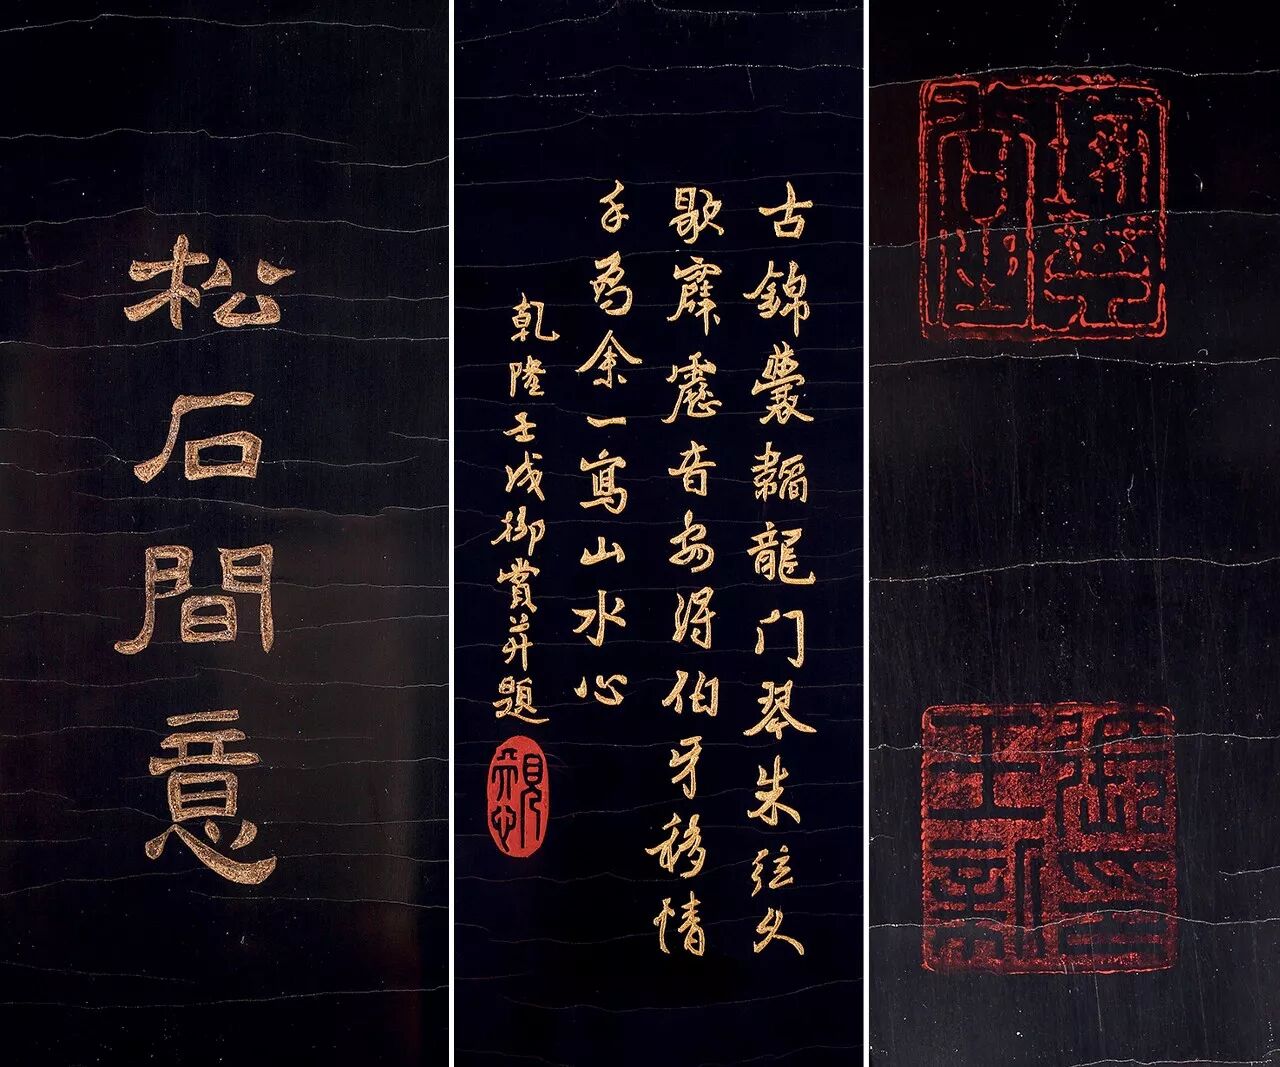 松石間意
古錦囊韜龍门琴朱弦久
歇霹靂音安得伯牙移情
手為余一寫山水心
乾隆壬戌御賞并題